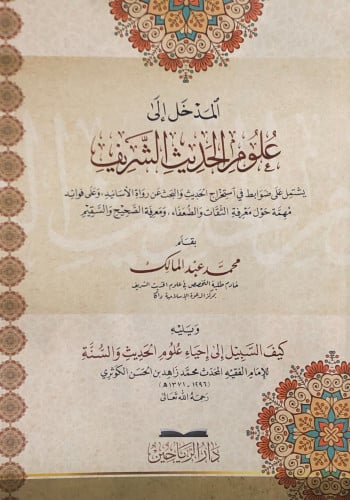 المدخل إلى
علوم الحديث الشريف
يشتمل على ضوابط في استخراج الحديث والبحث عن رواة الأسانيد، وعلى فوائد
مهمة حول معرفة الثقات والضعفاء، ومعرفة الصحيح والسقيم
بقلم
محمد عبد المالك
خادم طلبة التخصص في علوم الحديث الشريف
بمركز الدعوة الإسلامية داكا
ويليه
كيف السبيل إلى إحياء علوم الحديث والسنة
للإمام الفقيه المحدث محمد زاهد بن الحسن الكوثري
(١٢٩٦ - ١٣٧١ هـ)
رحمه الله تعالى
دار الرياحين